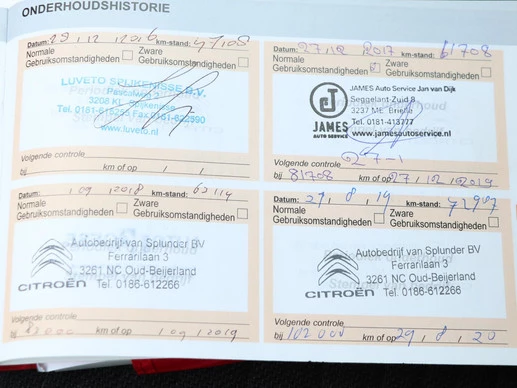 ONDERHOUDSHISTORIE
Datum: 29, 12, 2016 km-stand: 47108
Normale Gebruiksomstandigheden
Zware Gebruiksomstandigheden
LUVETO SPIJKENISSE B.V.
3208 KL Spijkenisse
www.luveto.nl
Volgende controle
bij km of op / /
Datum: 27, 12 2017 km-stand: 61708
Normale Gebruiksomstandigheden
Zware Gebruiksomstandigheden
JAMES Auto Service Jan van Dijk
Seggelant-Zuid 8
3237 ME Brielle
Tel. 0181-413777
www.jamesautoservice.nl
JAMES
AUTO SERVICE
Volgende controle
bij 81708 km of op 27, 12, 2019
Datum: 1 09 / 2018 km-stand:
Normale Gebruiksomstandigheden
Zware Gebruiksomstandigheden
Autobedrijf van Splunder BV
Ferrarilaan 3
3261 NC Oud-Beijerland
CITROËN Tel. 0186-612266
Volgende controle
bij km of op 1 09 / 2019
Datum: 29, 8, 19 km-stand:
Normale Gebruiksomstandigheden
Zware Gebruiksomstandigheden
Autobedrijf van Splunder BV
Ferrarilaan 3
3261 NC Oud-Beijerland
CITROËN Tel. 0186-612266
Volgende controle
bij 102 000 km of op 29, 8, 20